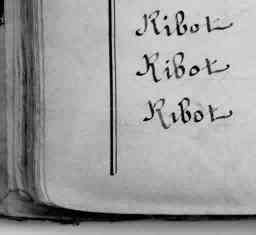 Ribot
Ribot
Ribot